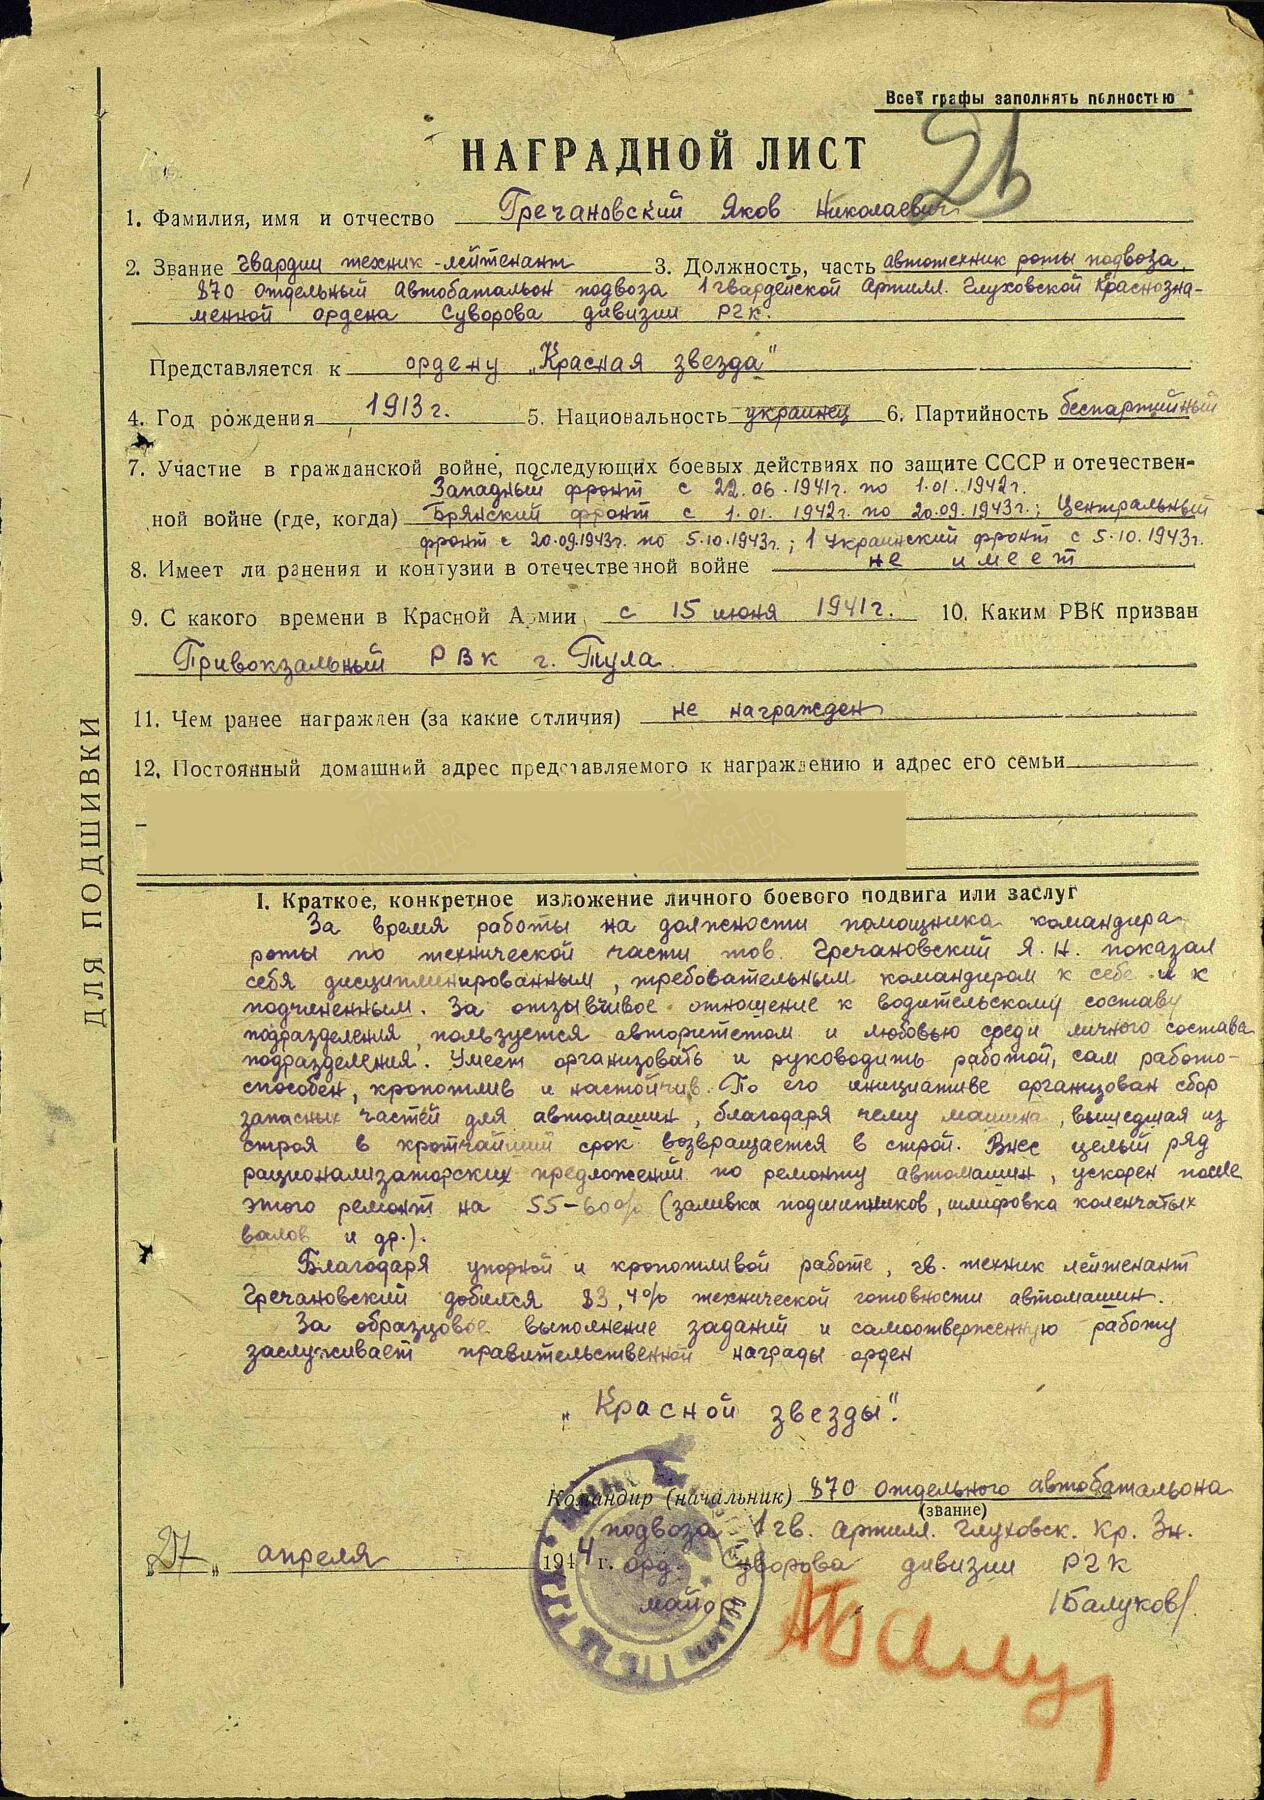 Все графы заполнять полностью
26
НАГРАДНОЙ ЛИСТ
1. Фамилия, имя и отчество Гречановский Яков Николаевич
2. Звание гвардии техник-лейтенант 3. Должность, часть автотехник роты подвоза,
870 отдельный автобатальон подвоза 1 гвардейской Артилл. Глуховской Краснозна-
менной ордена Суворова дивизии РГК.
Представляется к ордену „Красная звезда"
4. Год рождения 1913 г. 5. Национальность украинец 6. Партийность беспартийный
7. Участие в гражданской войне, последующих боевых действиях по защите СССР и отечествен-
Западный фронт с 22.06.1941г. по 1.01.1942г.
ной войне (где, когда) Брянский фронт с 1.01.1942г. по 20.09.1943г.; Центральный
фронт с 20.09.1943г. по 5.10.1943г.; 1 Украинский фронт с 5.10.1943г.
8. Имеет ли ранения и контузии в отечественной войне не имеет
9. С какого времени в Красной Армии с 15 июня 1941г. 10. Каким РВК призван
Привокзальный РВК г. Тула
11. Чем ранее награжден (за какие отличия) не награжден
12. Постоянный домашний адрес представляемого к награждению и адрес его семьи
ДЛЯ ПОДШИВКИ
I. Краткое, конкретное изложение личного боевого подвига или заслуг
За время работы на должности помощника командира
роты по технической части тов. Гречановский Я.Н. показал
себя дисциплинированным, требовательным командиром к себе и к
подчиненным. За отзывчивое отношение к водительскому составу
подразделения, пользуется авторитетом и любовью среди личного состава
подразделения. Умеет организовать и руководить работой, сам работо-
способен, кропотлив и настойчив. По его инициативе организован сбор
запасных частей для автомашин, благодаря чему машина, вышедшая из
строя в кротчайший срок возвращается в строй. Внес целый ряд
рационализаторских предложений по ремонту автомашин, ускорен после
этого ремонт на 55-60% (заливка подшипников, шлифовка коленчатых
валов и др.).
Благодаря упорной и кропотливой работе, гв. техник лейтенант
Гречановский добился 83,4% технической готовности автомашин.
За образцовое выполнение заданий и самоотверженную работу
заслуживает правительственной награды орден
„Красной звезды".
Командир (начальник) 870 отдельного автобатальона
(звание)
подвоза 1 гв. Артилл. Глуховск. Кр. Зн.
„27" апреля 1944 г. орд. Суворова дивизии РГК
майор /Балуков/
ПАМЯТЬ
НАРОДА